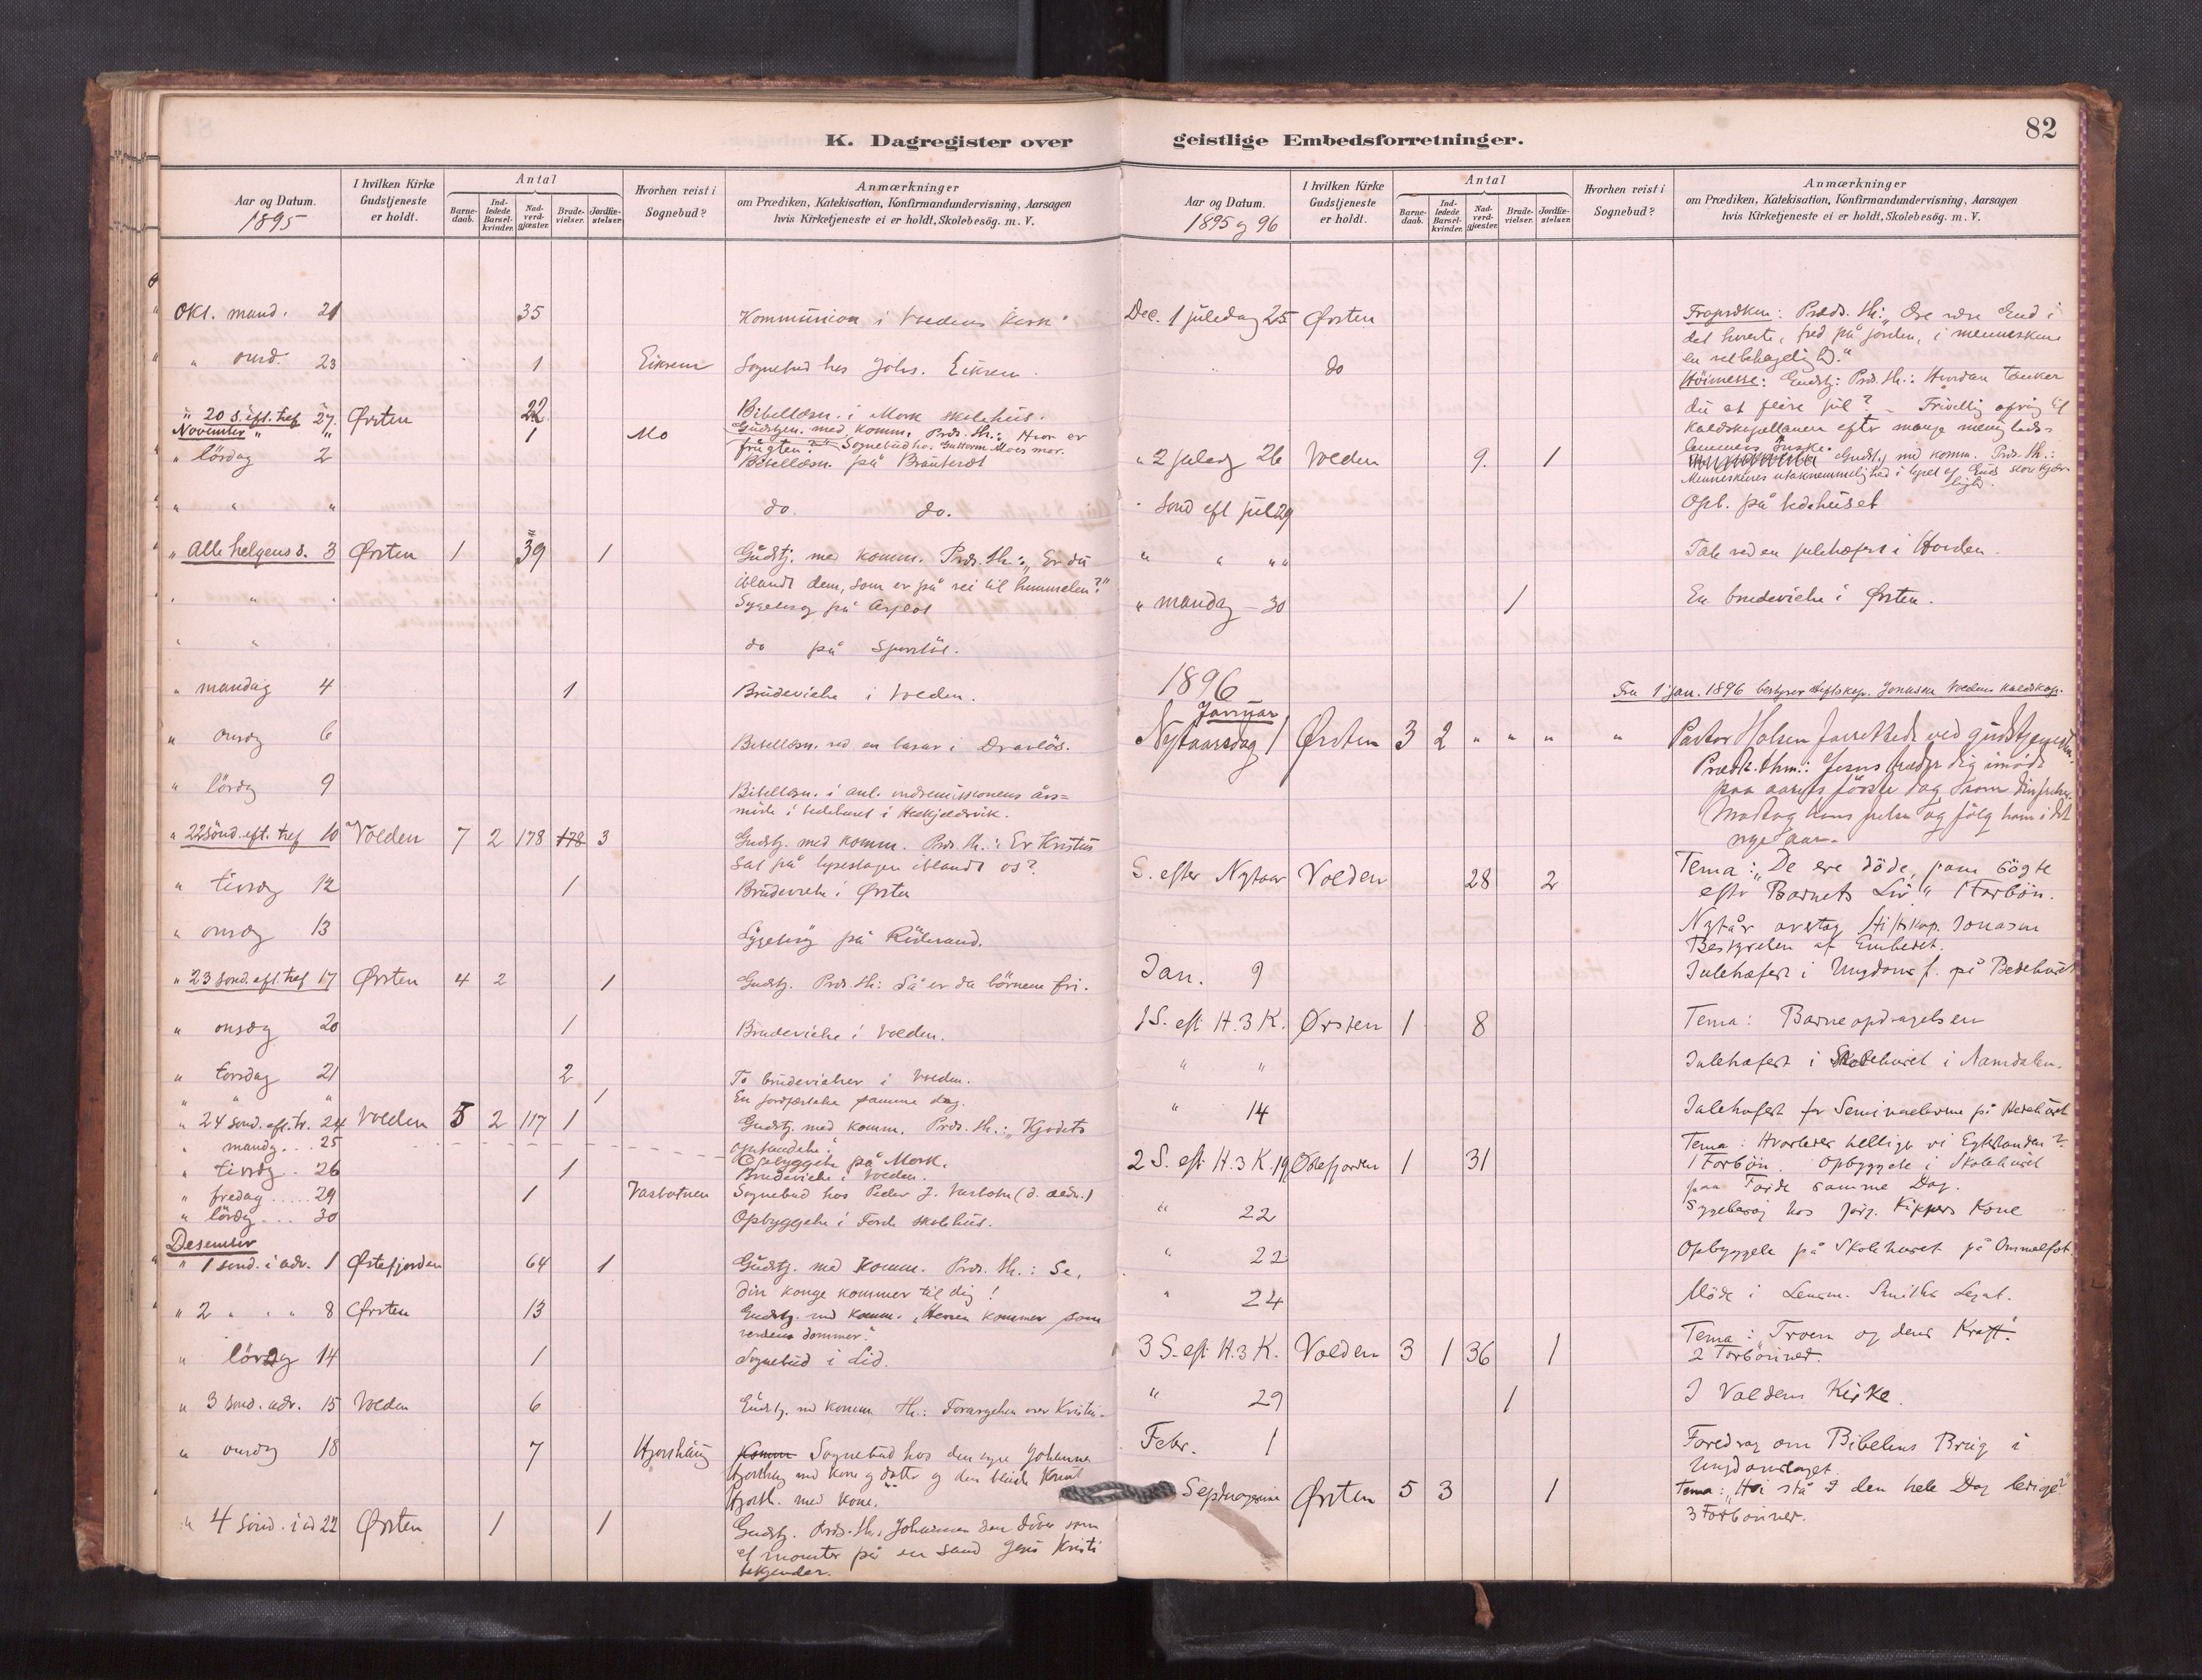 82
K. Dagregister over
Aar og Datum.
1895
I hvilken Kirke
Gudstjeneste
er holdt.
Antal
Barne-
daab.
Ind-
ledede
Barsel-
kvinder.
Nad-
verd-
gjæster.
Brude-
vielser.
Jordfæ-
stelser.
Hvorhen reist i
Sognebud?
Anmærkninger
om Prædiken, Katekisation, Konfirmandundervisning, Aarsagen
hvis Kirketjeneste ei er holdt, Skolebesög. m. V.
Okt. mand. 21 35 Kommunion i Voldens kirke
" onsd. 23 1 Eiksem Sognebud hos Johs. Eiksem.
Bibellæsn. i Mork skolehus.
" 20 s. eft. tref 27 Ørsten 22 Gudstjen. med komm. Præd. th.: Hvor er
November " " 1 Mo frugten?" Sognebud ho. Guttorm Moes mor.
" lördag 2 Bibellæsn. på
" " " do. do.
" Alle helgens s. 3 Ørsten 1 39 1 Gudstj. med komm. Præd. th.: "Er du
iblandt dem, som er på vei til himmelen?"
" " " Sygebesøg på
" " do på
" mandag 4 1 Brudevielse i Volden.
" onsdg 6 Bibellæsn. ved en basar i
" lördg 9 Bibellæsn. i anl. indremissionens års=
möde i bedehuset i
" 22 sönd. eft. tref 10 Volden 7 2 178 178 3 Gudstj. med komm. Præd. th.: Er Kristus
sat på lysestagen iblandt os?
" tirsdg 12 1 Brudevielse i Ørsten
" onsdg 13 Sygebesøg på
" 23 sönd. eft. tref 17 Ørsten 4 2 1 Gudstj. Præd. th.: Så er da börnene fri.
" onsdg 20 1 Brudevielse i Volden.
" torsdag 21 2 To brudevielser i Volden.
" " " 1 En jordfæstelse samme dag.
" 24 sönd. eft. tr. 24 Volden 5 2 117 1 Gudstj. med komm. Præd. th.: "Kjødets
opstandelse."
" mandg . . 25 Opbyggelse på Mork.
" tirsdg . . 26 1 Brudevielse i Volden.
" fredag . . . . 29 1 Vasbotnen Sognebud hos Peder J. Vasbotn
" lördg . . . 30 Opbyggelse i skolehus.
Desember
" 1 sönd. i adv. 1 Østefjorden 64 1 Gudstj. med komm. Præd. th.: Se,
din konge kommer til dig!
" 2 " " " 8 Ørsten 13 Gudstj. med komm. "Herren kommer som
verdens dommer."
" lördg 14 1 Sognebud i Lid.
" 3 sönd. adv. 15 Volden 6 Gudstj. med komm. Th.: Forargelsen over Kristus.
" onsdg 18 7 Hjorthaug Komm Sognebud hos den syge Johannes
Hjorthaug med kone og datter og den blinde Knut
Hjorth. med kone.
" 4 sönd. i ad 22 Ørsten 1 1 Gudstj. Præd. th. Johannes den döber som
et mönster på en sand Jesu Kristi
bekjender.
geistlige Embedsforretninger.
Aar og Datum.
1895 og 96
I hvilken Kirke
Gudstjeneste
er holdt.
Antal
Barne-
daab.
Ind-
ledede
Barsel-
kvinder.
Nad-
verd-
gjæster.
Brude-
vielser.
Jordfæ-
stelser.
Hvorhen reist i
Sognebud?
Anmærkninger
om Prædiken, Katekisation, Konfirmandundervisning, Aarsagen
hvis Kirketjeneste ei er holdt, Skolebesög. m. V.
Dec. 1 juledag 25 Ørsten Froprdken: Præd. th.: "Ære være Gud i
det høieste, fred på jorden, i menneskene
en velbehagelighd."
do Höimesse: Gudstj: Præd. th.: Hvordan tænker
du at feire jul? - Frivillig ofring til
kaldskapellanen efter mange menigheds-
lemmers önske.
" 2 juledg 26 Volden 9. 1 Gudstj med komm. Præd. th.:
Menneskenes utaknemmelighed i lyset af Guds store kjær-
lighd.
" Sönd eft jul 29 Opb. på bedehuset
" " " " Tale ved en julefest i Hovden.
" mandg - 30 1 En brudevielse i Ørsten.
1896 Fra 1 jan. 1896 bestyrer stiftskap. Jonassen Voldens kaldskap.
Januar
Nytaarsdag 1 Ørsten 3 2 " " " " Pastor Holsen forrettede ved gudstjenesten.
Prædk. thm.: Jesus træder dig imöde
paa aarets förste dag som din frelser.
Modtag hans frelse og fölg ham i det
nye aar.
S. efter Nytaar Volden 28 2 Tema: "De ere döde, som sögte
eftr Barnets Liv". 1 Forbön.
Nytår overtog Stiftskap. Jonassen
Bestyrelsen af Embedet.
Jan. 9 Juletræfest i Ungdoms f. på Bedehuset
1 S. eft H. 3 K. Ørsten 1 8 Tema: Barneopdragelsen
" " Juletræfest i Skolehuset i Namdalen.
" 14 Juletræfest for Seminaristerne på Bedehuset
2 S. eft H. 3 K. 19 Østefjorden 1 31 Tema: Hvorledes hellige vi Egtestanden?
1 Forbön. Opbyggelse i Skolehuset
paa samme Dag.
" 22 Sygebesøg hos Jörg. Kippers Kone
" 22 Opbyggelse på Skolehuset på
" 24 Möde i Lensm. Smiths Legat.
3 S. eft H. 3 K. Volden 3 1 36 1 Tema: "Troen og dens Kraft."
2 Forbönner.
" 29 1 I Voldens Kirke.
Febr. 1 Foredrag om Bibelens Brug i
Ungdomslaget
Septuagesima Ørsten 5 3 1 Tema: "Hvi stå I den hele Dag ledige?"
3 Forbönner.